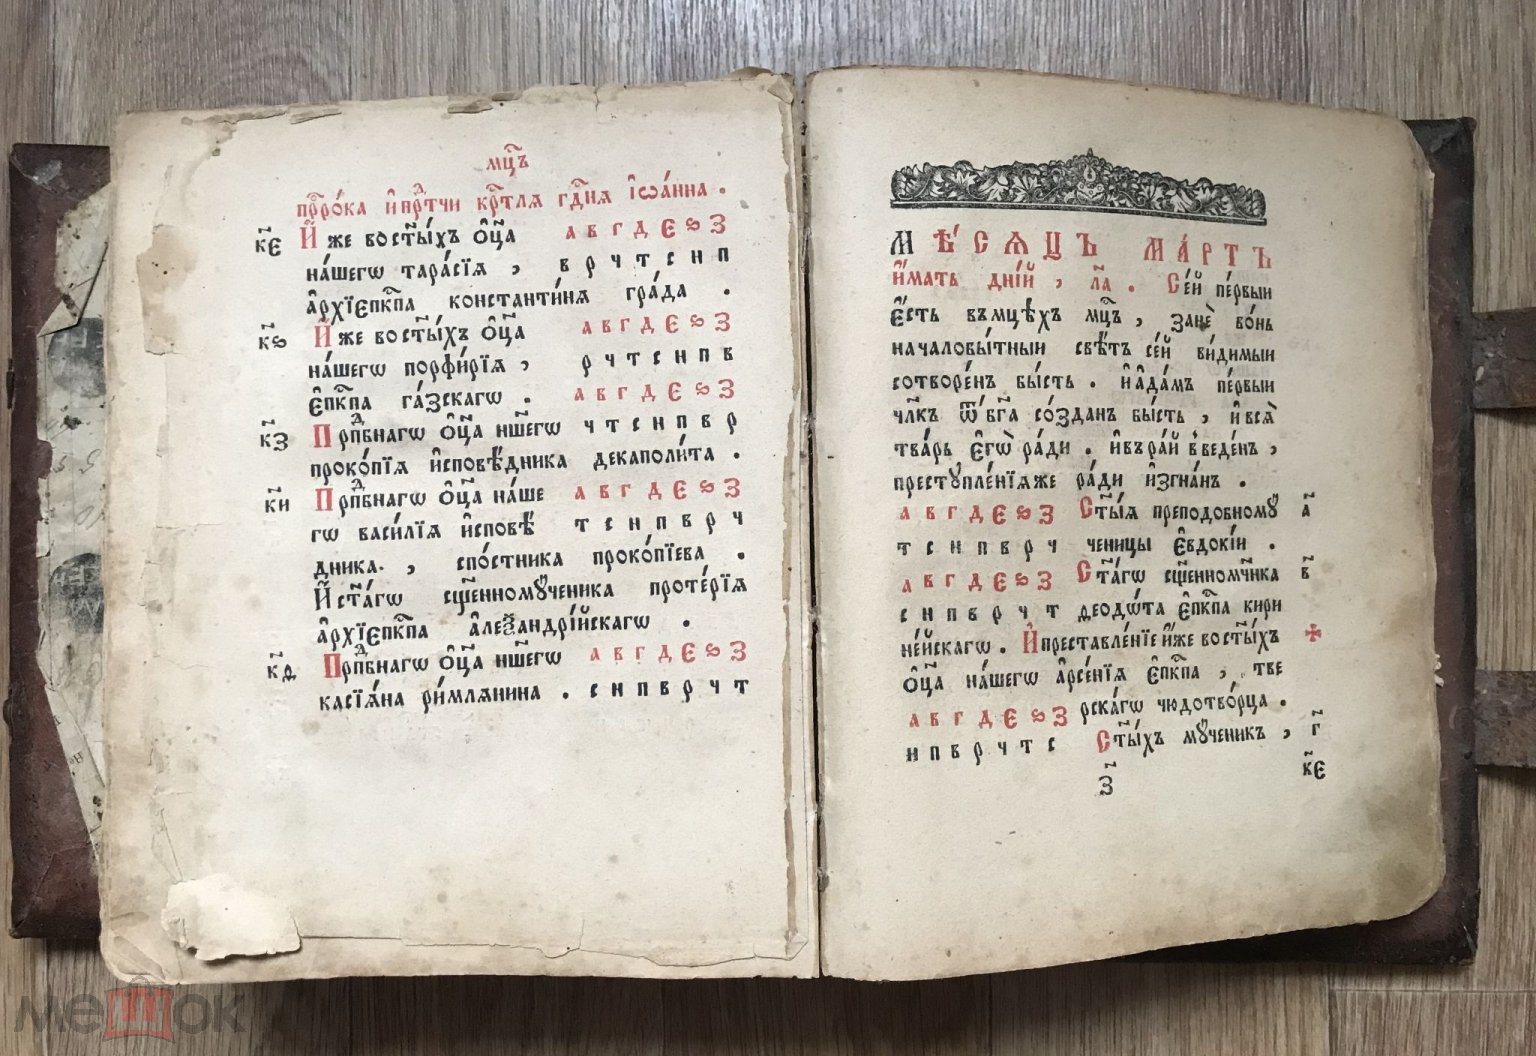 мцⷭ҇ъ
прⷪ҇ро́ка и҆прⷣтчи крⷭ҇тлѧ гдⷭ҇нѧ і҆ѡа́нна .
к҃є И҆́ же востⷭ҇ы́хъ ѻ҆ц҃а а в г д є ѕ з
на́шегѡ тара́сїѧ , в р ч т с н п
а҆рхїєпⷭ҇кпа константи́нѧ гра́да .
к҃ѕ И҆́ же востⷭ҇ы́хъ ѻ҆ц҃а а в г д є ѕ з
на́шегѡ порфи́рїѧ , р ч т с н п в
є҆пⷭ҇кпа га́зскагѡ . а в г д є ѕ з
к҃з Прпⷣбнагѡ ѻ҆ц҃а нш҃егѡ ч т с н п в р
проко́пїѧ и҆сповѣ́дника декаполи́та .
к҃и Прпⷣбнагѡ ѻ҆ц҃а на́ше а в г д є ѕ з
гѡ васи́лїѧ и҆сповѣ́ т с н п в р ч
дника . , спо́стника проко́пїева .
И҆ст҃а́гѡ сщ҃енномꙋ́ченика проте́рїѧ
а҆рхїєпⷭ҇кпа а҆леѯандрі́йскагѡ .
к҃ѳ Прпⷣбнагѡ ѻ҆ц҃а нш҃егѡ а в г д є ѕ з
касїѧ́на ри́млѧнина . с н п в р ч т
МѢ́СѦЦЪ МА́РТЪ
и҆́мать дні́й , л҃а . Се́й пе́рвыи
є҆́сть въмцⷭ҇ѣхъ мцⷭ҇ъ , занѐ во́нь
началобы́тныи свѣ́тъ се́й ви́димыи
сотворе́нъ бы́сть . и҆а҆да́мъ пе́рвый
чл҃къ ѿбг҃а со́зданъ бы́сть , и҆всѧ̀
тва́рь є҆гѡ̀ ра́ди . и҆въра́й введе́нъ ,
престꙋпле́нїѧже ра́ди и҆згна́нъ .
а в г д є ѕ з Ст҃ы́ѧ преподобномꙋ́ а҃
т с н п в р ч ченицы є҆вдокі́и .
а в г д є ѕ з Ст҃а́гѡ сщ҃енномч҃нка в҃
с н п в р ч т деодѡ́та є҆пⷭ҇кпа кири
не́йскагѡ . И҆преставле́нїе и҆́же востⷭ҇ы́хъ ✠
ѻ҆ц҃а на́шегѡ а҆рсе́нїѧ є҆пⷭ҇кпа , тве
а в г д є ѕ з рска́гѡ чюдотво́рца .
н п в р ч т с Ст҃ы́хъ мꙋ́ченикъ , г҃
з҃ к҃є
мешок